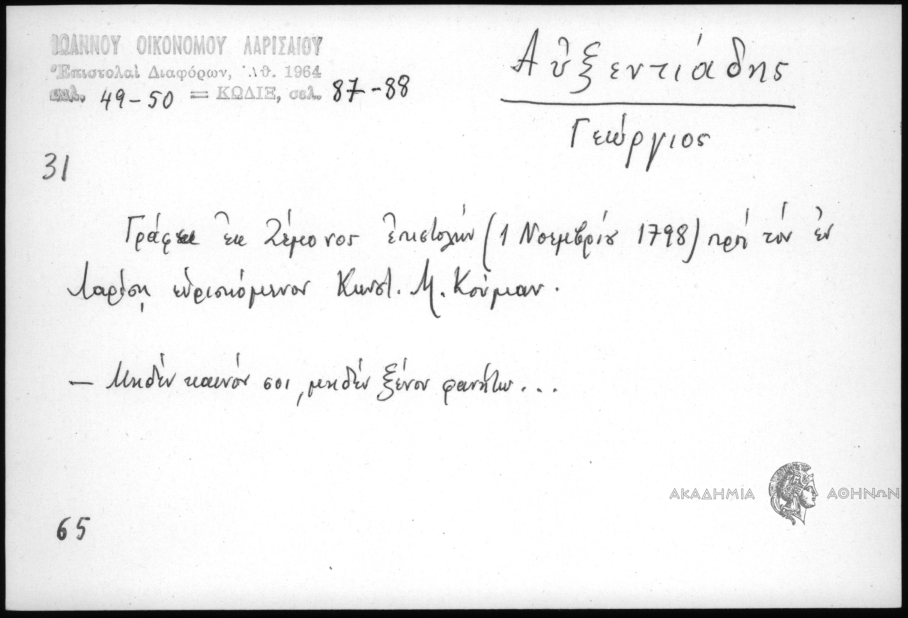 ΙΩΑΝΝΟΥ ΟΙΚΟΝΟΜΟΥ ΛΑΡΙΣΑΙΟΥ
Ἐπιστολαὶ Διαφόρων, Ἀθ. 1964
σελ. 49-50 = ΚΩΔΙΞ, σελ. 87-88
Αὐξεντιάδης
Γεώργιος
31
Γράφει ἐκ Ζέμονος ἐπιστολὴν (1 Νοεμβρίου 1798) πρὸς τὸν ἐν
Λαρίσῃ εὑρισκόμενον Κωνστ. Μ. Κούμαν.
— Μηδὲν καινόν σοι, μηδὲν ξένον φανήτω...
ΑΚΑΔΗΜΙΑ ΑΘΗΝΩΝ
65